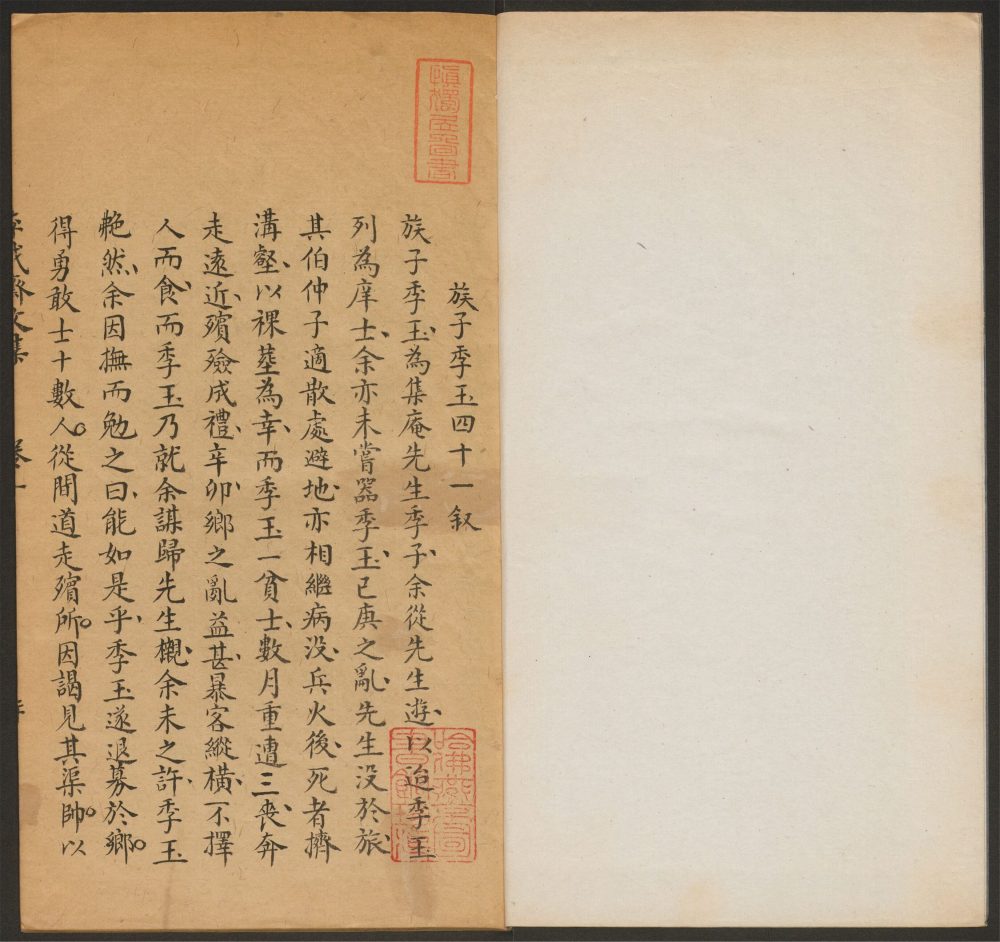 族子季玉四十一叙
族子季玉為集庵先生季子余從先生遊以迨季玉
列為庠士余亦未嘗器季玉已庚之亂先生没於旅
其伯仲子適散處避地亦相繼病没兵火後死者擠
溝壑以裸塟為幸而季玉一貧士數月重遭三丧奔
走遠近殯殮成禮辛卯鄉之亂益甚暴客縱横不擇
人而食而季玉乃就余謀歸先生櫬余未之許季玉
艴然余因撫而勉之曰能如是乎季玉遂退募於鄉
得勇敢士十數人從間道走殯所因謁見其渠帥以
齋文集 卷一